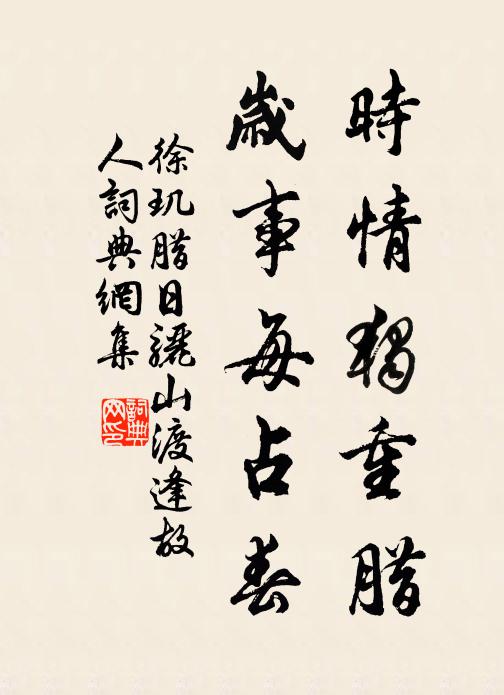 時情獨重腊
歲事每占春
徐玑腊日驪山渡逢故
人詞典網集
詞典
网印